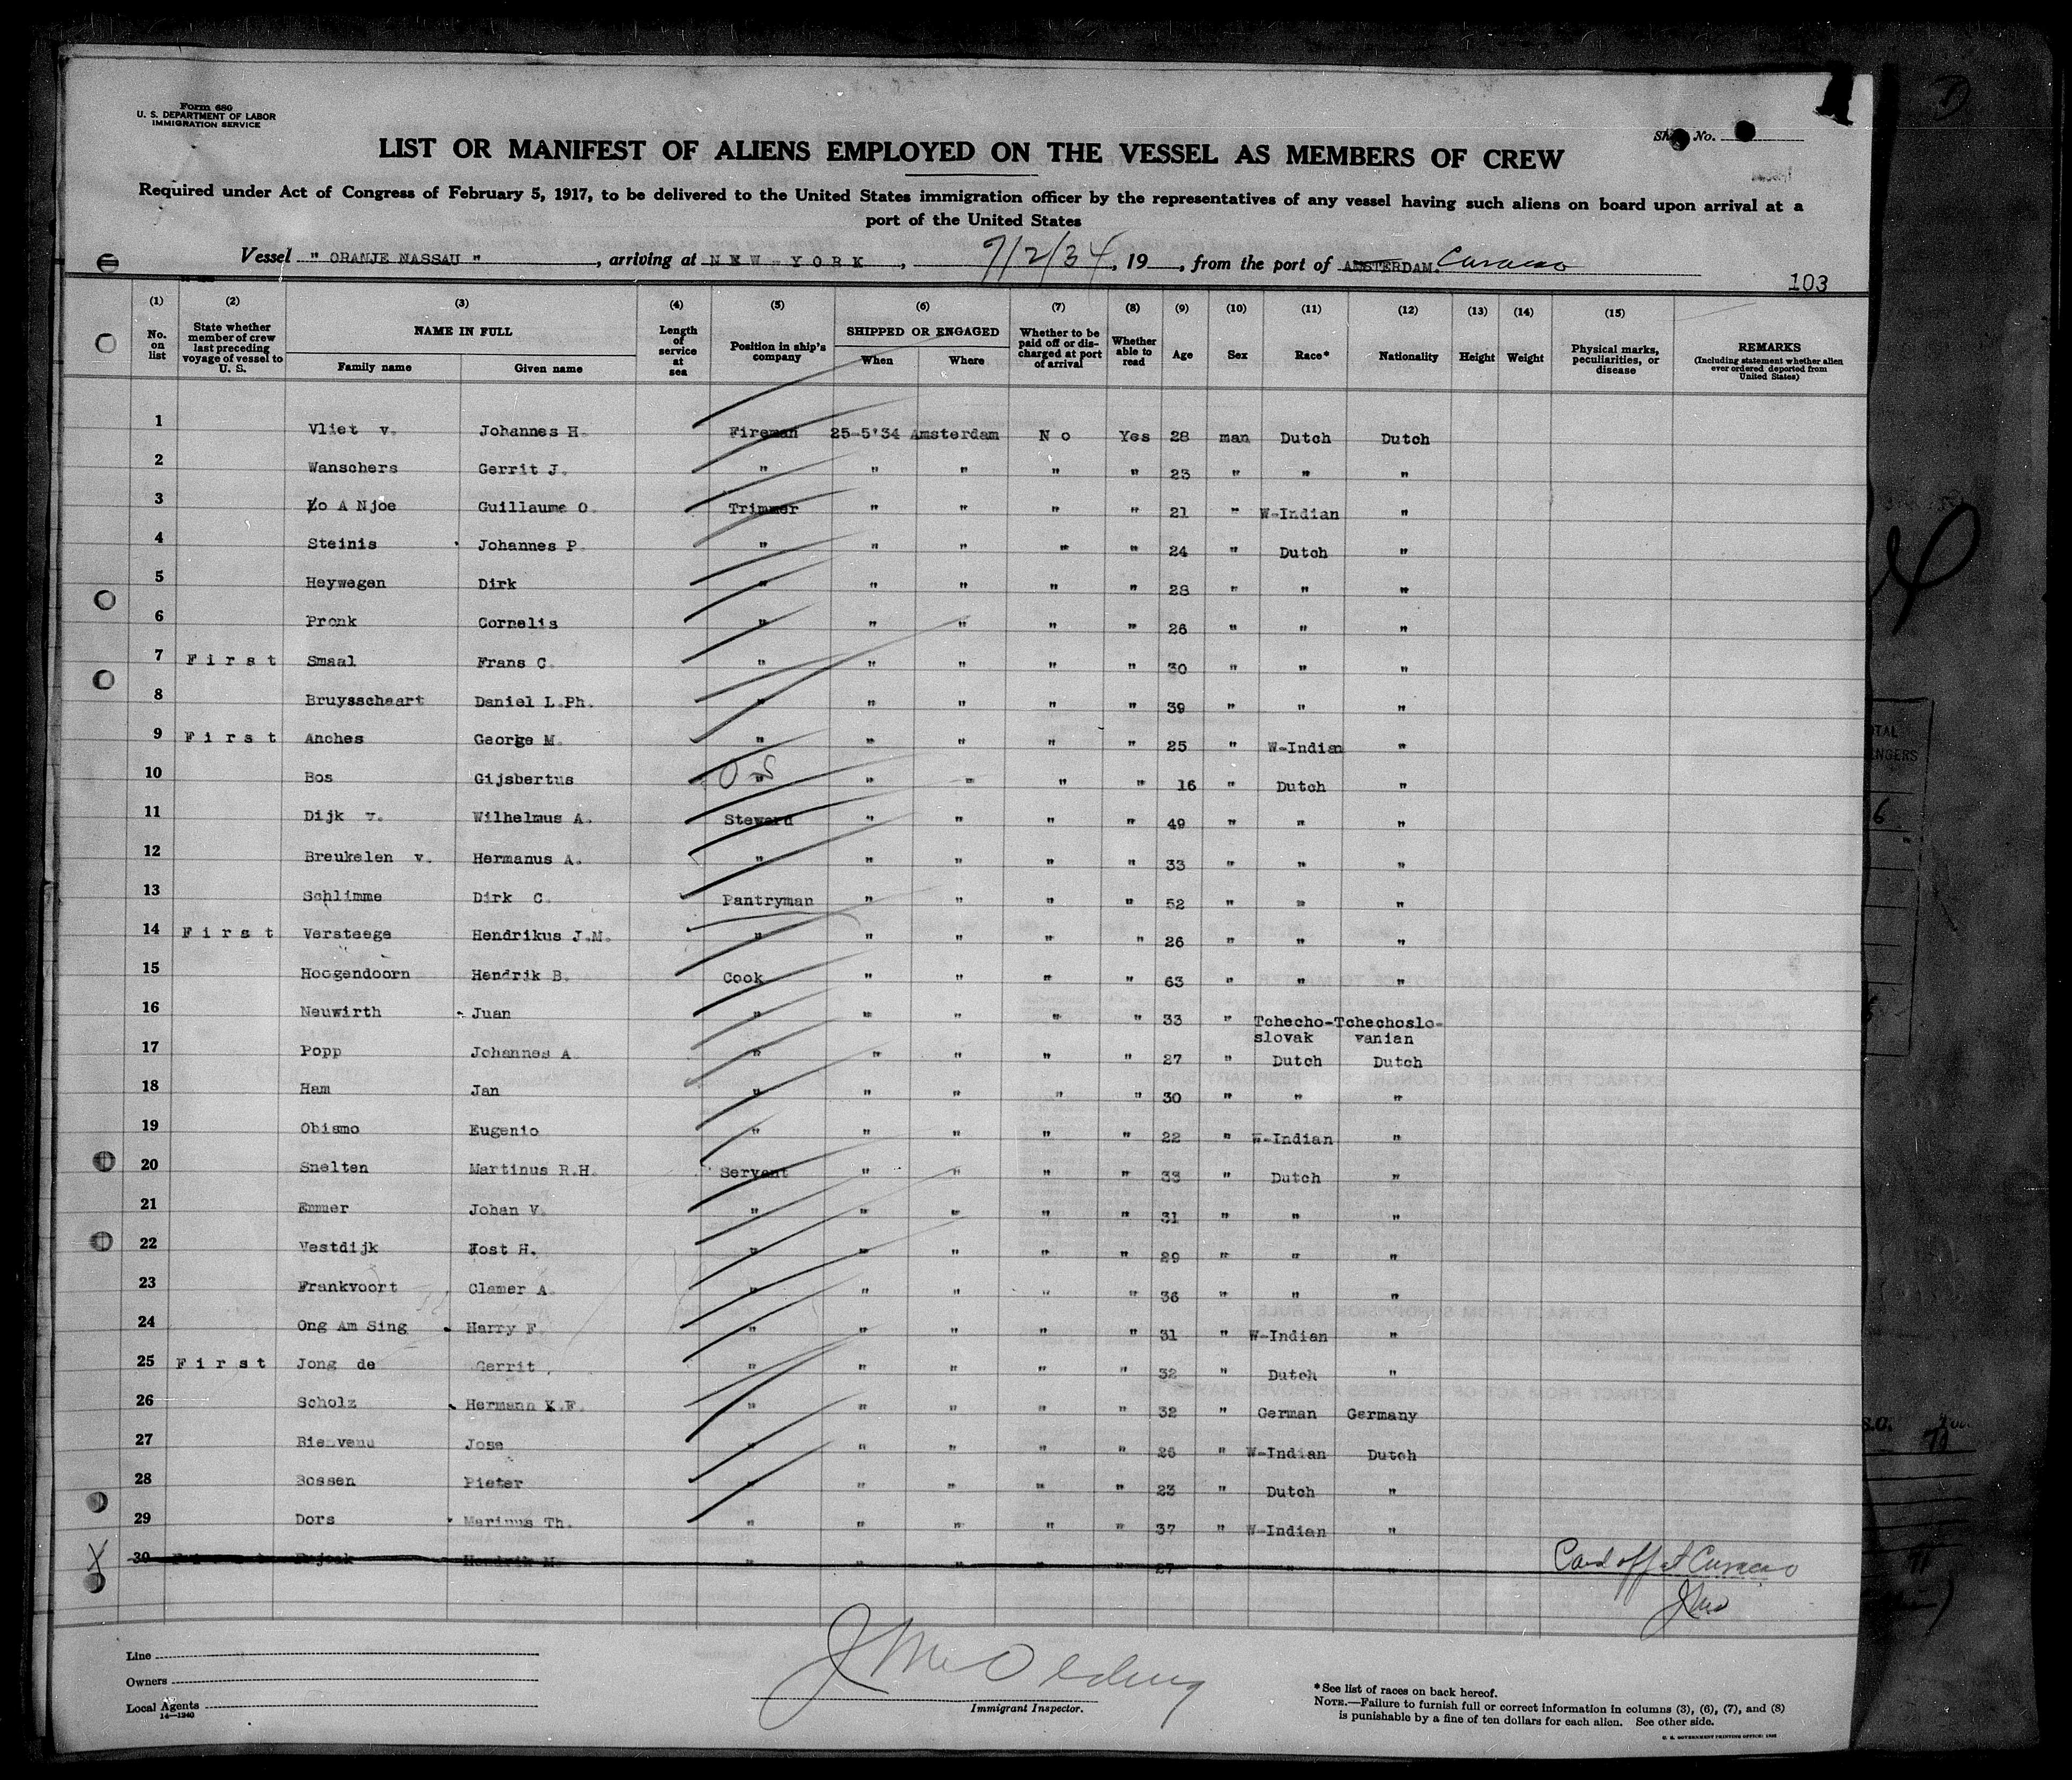 Form 680
U. S. DEPARTMENT OF LABOR
IMMIGRATION SERVICE
Ship No.
LIST OR MANIFEST OF ALIENS EMPLOYED ON THE VESSEL AS MEMBERS OF CREW
Required under Act of Congress of February 5, 1917, to be delivered to the United States immigration officer by the representatives of any vessel having such aliens on board upon arrival at a
port of the United States
Vessel " ORANJE NASSAU " , arriving at NEW-YORK , 7/2/34, 19 , from the port of AMSTERDAM. Curacao
103
(1) No. on list (2) State whether member of crew last preceding voyage of vessel to U. S. (3) NAME IN FULL Family name Given name (4) Length of service at sea (5) Position in ship's company (6) SHIPPED OR ENGAGED When Where (7) Whether to be paid off or discharged at port of arrival (8) Whether able to read (9) Age (10) Sex (11) Race* (12) Nationality (13) Height (14) Weight (15) Physical marks, peculiarities, or disease REMARKS (Including statement whether alien ever ordered deported from United States)
1 Vliet v. Johannes H. Fireman 25-5'34 Amsterdam No Yes 28 man Dutch Dutch
2 Wanschers Gerrit J. " " " " " 23 " " "
3 Lo A Njoe Guillaume O. Trimmer " " " " 21 " W-Indian "
4 Steinis Johannes P. " " " " " 24 " Dutch "
5 Heywegen Dirk " " " " " 28 " " "
6 Pronk Cornelis " " " " " 26 " " "
7 First Smaal Frans C. " " " " " 30 " " "
8 Bruysschaart Daniel L.Ph. " " " " " 39 " " "
9 First Anches George M. " " " " " 25 " W-Indian "
10 Bos Gijsbertus " OS " " " " 16 " Dutch "
11 Dijk v. Wilhelmus A. Steward " " " " 49 " " "
12 Breukelen v. Hermanus A. " " " " " 33 " " "
13 Schlimme Dirk C. Pantryman " " " " 52 " " "
14 First Versteege Hendrikus J.M. " " " " " 26 " " "
15 Hoogendoorn Hendrik B. Cook " " " " 63 " " "
16 Neuwirth Juan " " " " " 33 " Tchecho-slovak Tchechoslo-vanian
17 Popp Johannes A. " " " " " 27 " Dutch Dutch
18 Ham Jan " " " " " 30 " " "
19 Obismo Eugenio " " " " " 22 " W-Indian "
20 Snelten Martinus R.H. Servant " " " " 33 " Dutch "
21 Emmer Johan V. " " " " " 31 " " "
22 Vestdijk Kost H. " " " " " 29 " " "
23 Frankvoort Clamer A. " " " " " 36 " " "
24 Ong Am Sing Harry F. " " " " " 31 " W-Indian "
25 First Jong de Gerrit " " " " " 32 " Dutch "
26 Scholz Hermann K.F. " " " " " 32 " German Germany
27 Bienvenu Jose " " " " " 26 " W-Indian Dutch
28 Bossen Pieter " " " " " 23 " Dutch "
29 Dors Marinus Th. " " " " " 37 " W-Indian "
30 Hendrik M. " " " " " 27 " " "
off at Curacao
Line
Owners
Local Agents
14—1240
Immigrant Inspector.
*See list of races on back hereof.
NOTE.—Failure to furnish full or correct information in columns (3), (6), (7), and (8)
is punishable by a fine of ten dollars for each alien. See other side.